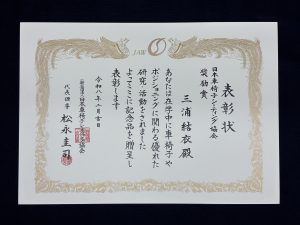 JAWS
表彰状
日本車椅子シーティング協会
奨励賞
三浦結衣殿
あなたは在学中に車椅子や
ポジショニングに関わる優れた
研究・活動をされました
よってここに記念品を贈呈し
表彰します
令和八年二月吉日
日本車椅子シーティング協会
代表理事 松永圭司